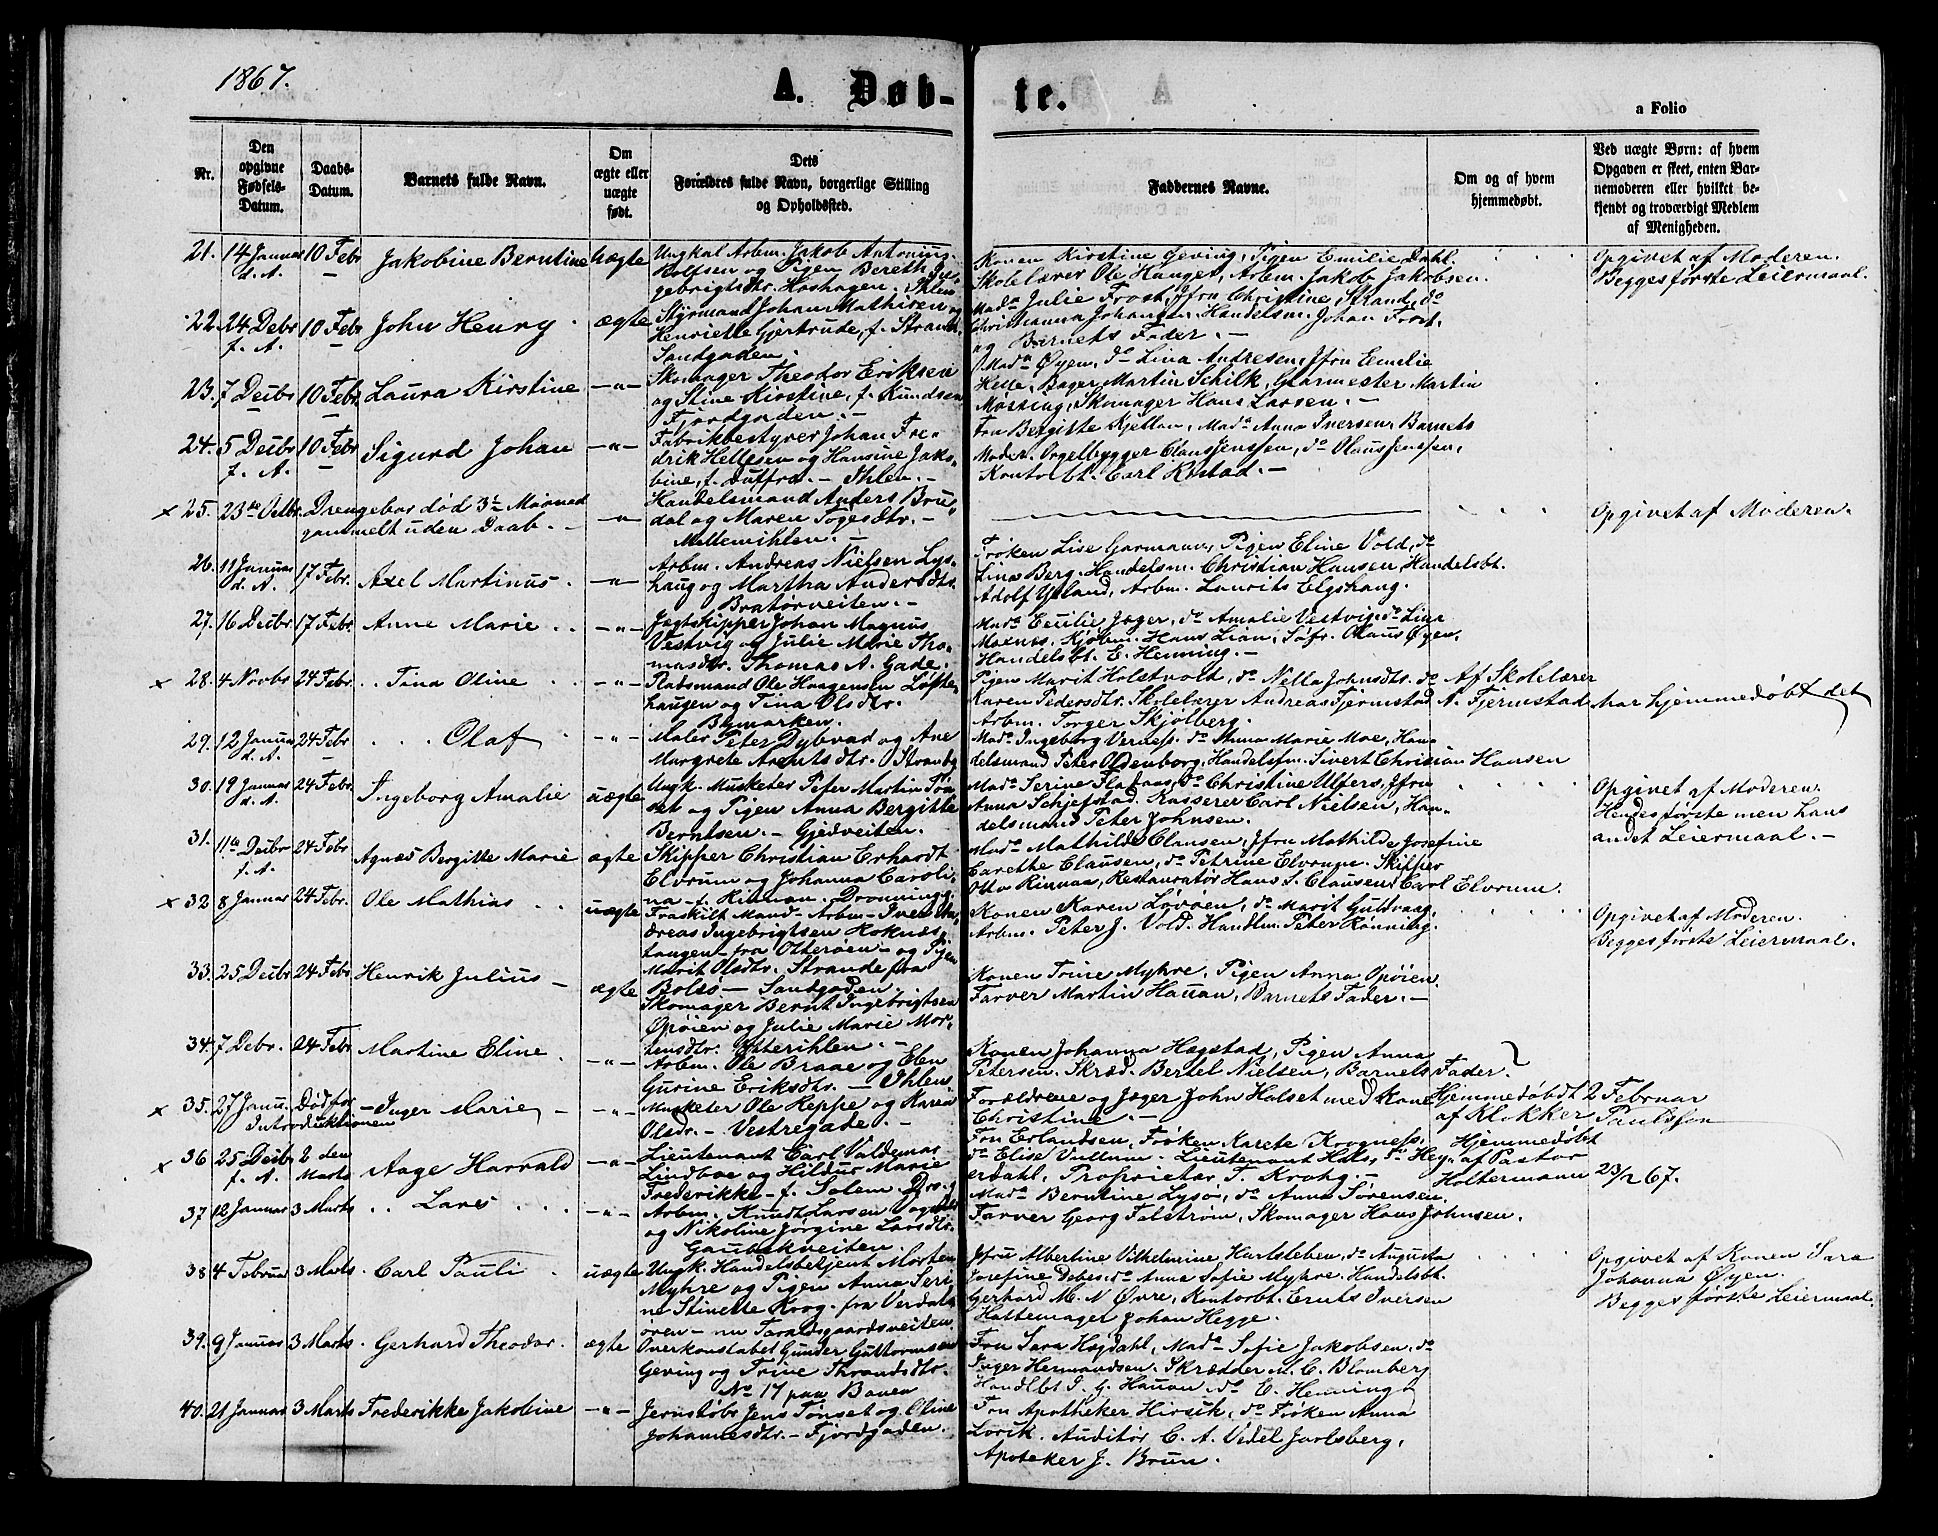 1867.
A. Døb-
te.
a Folio
Nr.
Den opgivne Fødsels-Datum.
Daabs-Datum.
Barnets fulde Navn.
Om ægte eller uægte født.
Dets Forældres fulde Navn, borgerlige Stilling og Opholdssted.
Faddernes Navne.
Om og af hvem hjemmedøbt.
Ved uægte Børn: af hvem Opgaven er skeet, enten Barnemoderen eller hvilket bekjendt og troværdigt Medlem af Menigheden.
21. 14 Januar d. A. 10 Febr Jakobine Berntine uægte
Ungkal Arbm. Jakob Antonius
Rolfsen og Pigen Bereth Inge-
gebrigtsdtr. Hoshagen. Ihlen
Konen Kirstine Geving, Pigen Emilie Dahl.
Skolelærer Ole Hanges, Arbm. Jakob Jakobsen.
Opgivet af Moderen.
Begges første Leiermaal.
22. 24 Debr f. A. 10 Febr John Henry ægte
Styrmand Johan Mathisen og
Henriette Gjertrude, f. Strand.
Sandgaden.
Mada Julie Frost, Jfru Christine Strand, do
Christianna Johansen. Handelsm. Johan Frost.
og Barnets Fader. —
23. 7 Deibr 10 Febr. Laura Kirstine —"—
Skomager Theodor Eriksen
og Stine Kirstine, f. Knudsen
Fjordgaden. —
Mada Øyen, do Lina Andresen, Jfru Emilie
Helle. Bager Martin Schilk, Glarmester Martin
Møsting, Skomager Hans Larsen. —
24. 5 Deibr f. A. 10 Febr Sigurd Johan —"—
Fabrikbestyrer Johan Fre-
drik Hellesen og Hansine Jako-
bine, f. Duffra. — Ihlen. —
Fru Bergitte Kjellan, Mada Anna Iversen Barnets
Moder. Orgelbygger Claus Jenssen, do Olaus Jenssen,
Kontorbt. Carl Rostad. —
x 25. 23de Octbr. Drengebar død 3½ Maaned
gammelt uden Daab. —"—
Handelsmand Anders Brue-
dal og Maren Togesdtr. —
Mellemihlen. —
Opgivet af Moderen.
26. 11 Januar d. A. 17 Febr. Axel Martinus —"—
Arbm. Andreas Nielsen Lys-
haug og Martha Andersdtr.
Bratørveiten. —
Frøken Lise Garmann, Pigen Eline Vold, do
Lina Berg. Handelsm. Christian Hansen Handelsbt.
Adolf Yland, Arbm. Laurits Elgshaug.
27. 16 Deibr 17 Febr. Anne Marie —"—
Jagtskipper Johan Magnus
Vestvig og Julie Marie Tho-
masdtr. Thomas A. Gade.
Mada Emilie Jæger, do Amalie Vestvig, do Line
Moenes, Kjøbm. Hans Lian, Søfr. Olaus Øyen,
Handelsbt. E. Henning. —
x 28. 4 Novbr 24 Febr. Tina Oline —"—
Pladsmand Ole Haagensen Løften-
haugen og Tina Olsdtr.
Bymarken.
Pigen Marit Holstvolt, do Nella Johnsdtr. do
Karen Pedersdtr. Skolelærer Andreas Fjermstad
Arbm. Torger Skjølberg.
Af Skolelærer
A. Fjermstad
har hjemmedøbt det
29. 12 Januar d. A. 24 Febr Olaf —"—
Maler Peter Dybvad og Ane
Margrete Arentsdtr. Ø. Strandg
Mada Ingeborg Verness. do Anna Marie Moe, Han-
delsmand Peter Oldenborg, Handelsfm. Sivert Christian Hansen
30. 19 Januar d. A. 24 Febr. Ingeborg Amalie uægte
Ungk. Musketer Peter Martin
og Pigen Anna Bergitte
Berntsen. — Gjedveiten.
Mada Serine Fladaas, do Christine Ulfers, Jfru
Anna Schjefstad. Kasserer Carl Nielsen, Han-
delsmand Peter Johnsen.
Opgivet af Moderen.
Hendes første men hans
andet Leiermaal. —
31. 11te Deibr f. A. 24 Febr Agnes Bergitte Marie ægte
Skipper Christian Erhardt
Elvrum og Johanna Caroli-
na f. Rinnan. Dronningg
Mada Mathilde Clausen, Jfru Mathilde Josefine
Carethe Clausen, do Petrine Elvrum. Skipper
Otto Rinnan, Restauratør Hans S. Clausen, Carl Elvrum.
x 32 8 Januar 24 Febr. Ole Mathias uægte
Fraskilt Mand — Arbm. Iver An-
dreas Ingebrigtsen Roknæs
tangen — fra Otterøen — og Pigen
Marit Olsdtr. Strande fra
Bolsø — Sandgaden.
Konen Karen Løvaen, do Marit Guldvaag.
Arbm. Peter J. Vold. Handlm. Peter Rønning.
Opgivet af Moderen.
Begges første Leiermaal.
33. 25 Deibr 24 Febr Henrik Julius — ægte
Skomager Bernt Ingebrigtsen
Opøien og Julie Marie Mor-
tensdtr. Ytterihlen. —
Konen Trine Myhre, Pigen Anna Opøien
Farver Martin Hauan, Barnets Fader. —
34. 7 Debr. 24 Febr Martine Eline —"—
Arbm. Ole Braae og Elen
Gurine Eriksdtr. — Ihlen.
Konen Johanna Hægstad, Pigen Anna
Petersen. Skræd. Bertel Nielsen, Barnets Fader.
x 35. 27 Janu. Død før Introduktionen — Inger Marie — —"—
Musketer Ole Reppe og Karen
Olsdr. — Vestregade. —
Forældrene og Jæger John Halset med Kone
Christine. —
Hjemmedøbt 2 Februar
af Klokker Paulssen
x 36 25 Deibr f. A. 2 den Marts Aage Harrald —"—
Lieutenant Carl Valdemar
Lindboe og Hildur Marie
Frederikke — f. Solem. Dro.g
Fru Erlandsen, Frøken Karete Krogness.
do Elise Vullum. Lieutenant Hals, do Hey-
erdahl, Proprietær T. Krohg.
Hjemmedøbt
af Pastor
Holtermann 23/2 67.
37 12 Januar 3 Marts Lars —"—
Arbm. Knudt Larsen
og Nikoline Jørgine Larsdtr.
Gaubækveiten
Mada Berntine Lysø, do Anna Sørensen.
Farver Georg Falstrøm, Skomager Hans Johnsen.
38 4 Februar 3 Marts Carl Pauli uægte
Ungk. Handelsbetjent Morten
Myhre og Pigen Anna Seri-
ne Stinette Krog. fra Verdals
øren — nu Taraldsgaardsveiten
Jfru Albertine Vilhelmine Hartsleben, do Augusta
Josefine Debes. do Anna Sofie Myhre. Handelsbt.
Gerhard M. N Øvre, Kontorbt. Ernts Iversen
Hattemager Johan Hegge.
Opgivet af Konen Sara
Johanna Øyen.
Begges første Leiermaal.
39. 9 Januar 3 Marts Gerhard Theodor. ægte
Overkonstabel Gunder Guttormsen
Geving og Trine Thrandsdtr.
No 17 paa Banen
Fru Sara Hogdahl, Mada Sofie Jakobsen, do
Inger Hermandsen. Skrædder M. C. Blomberg
Handlbt J. G. Hauan, do E. Henning
40. 21 Januar 3 Marts Frederikke Jakobine —"—
Jernstøbr Jens Tønset og Oline
Johannesdtr. — Fjordgaden.
Fru Apotheker Hirsik, do Frøken Anna
Lorik. Auditør C. A. Vedel Jarlsberg,
Apoteker J. Brun.